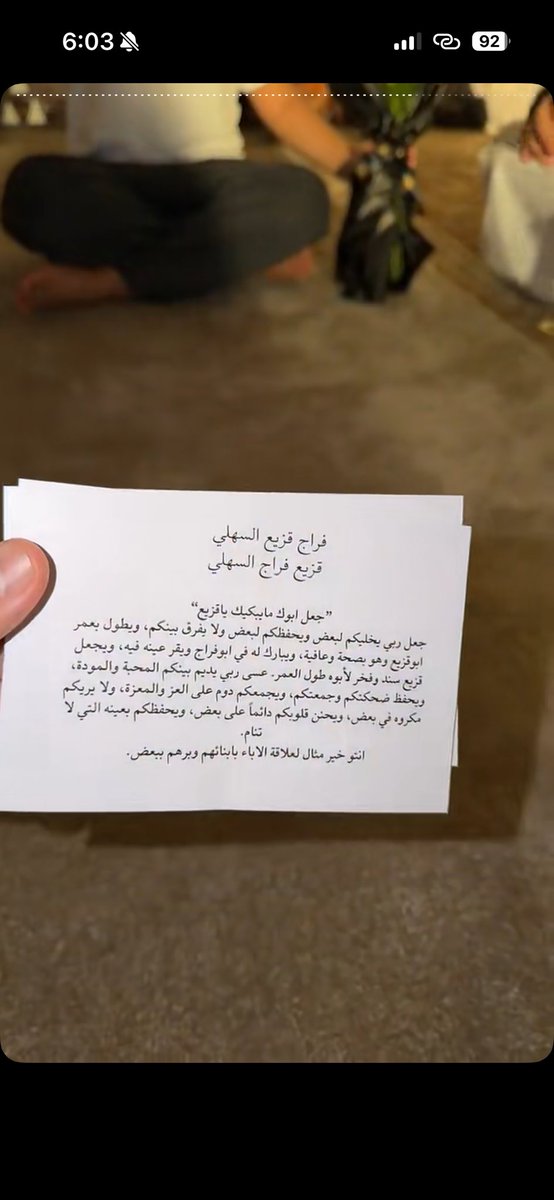 6:03
92
فراج قزيع السهلي
قزيع فراج السهلي
”جعل ابوك مايبكيك ياقزيع“
جعل ربي يخليكم لبعض ويحفظكم لبعض ولا يفرق بينكم، ويطول بعمر
ابوقزيع وهو بصحة وعافية، ويبارك له في ابوفراج ويقر عينه فيه، ويجعل
قزيع سند وفخر لأبوه طول العمر. عسى ربي يديم بينكم المحبة والمودة،
ويحفظ ضحكتكم وجمعتكم، ويجمعكم دوم على العز والمعزة، ولا يريكم
مكروه في بعض، ويحنن قلوبكم دائماً على بعض، ويحفظكم بعينه التي لا
تنام.
انتو خير مثال لعلاقة الاباء بابنائهم وبرهم ببعض.